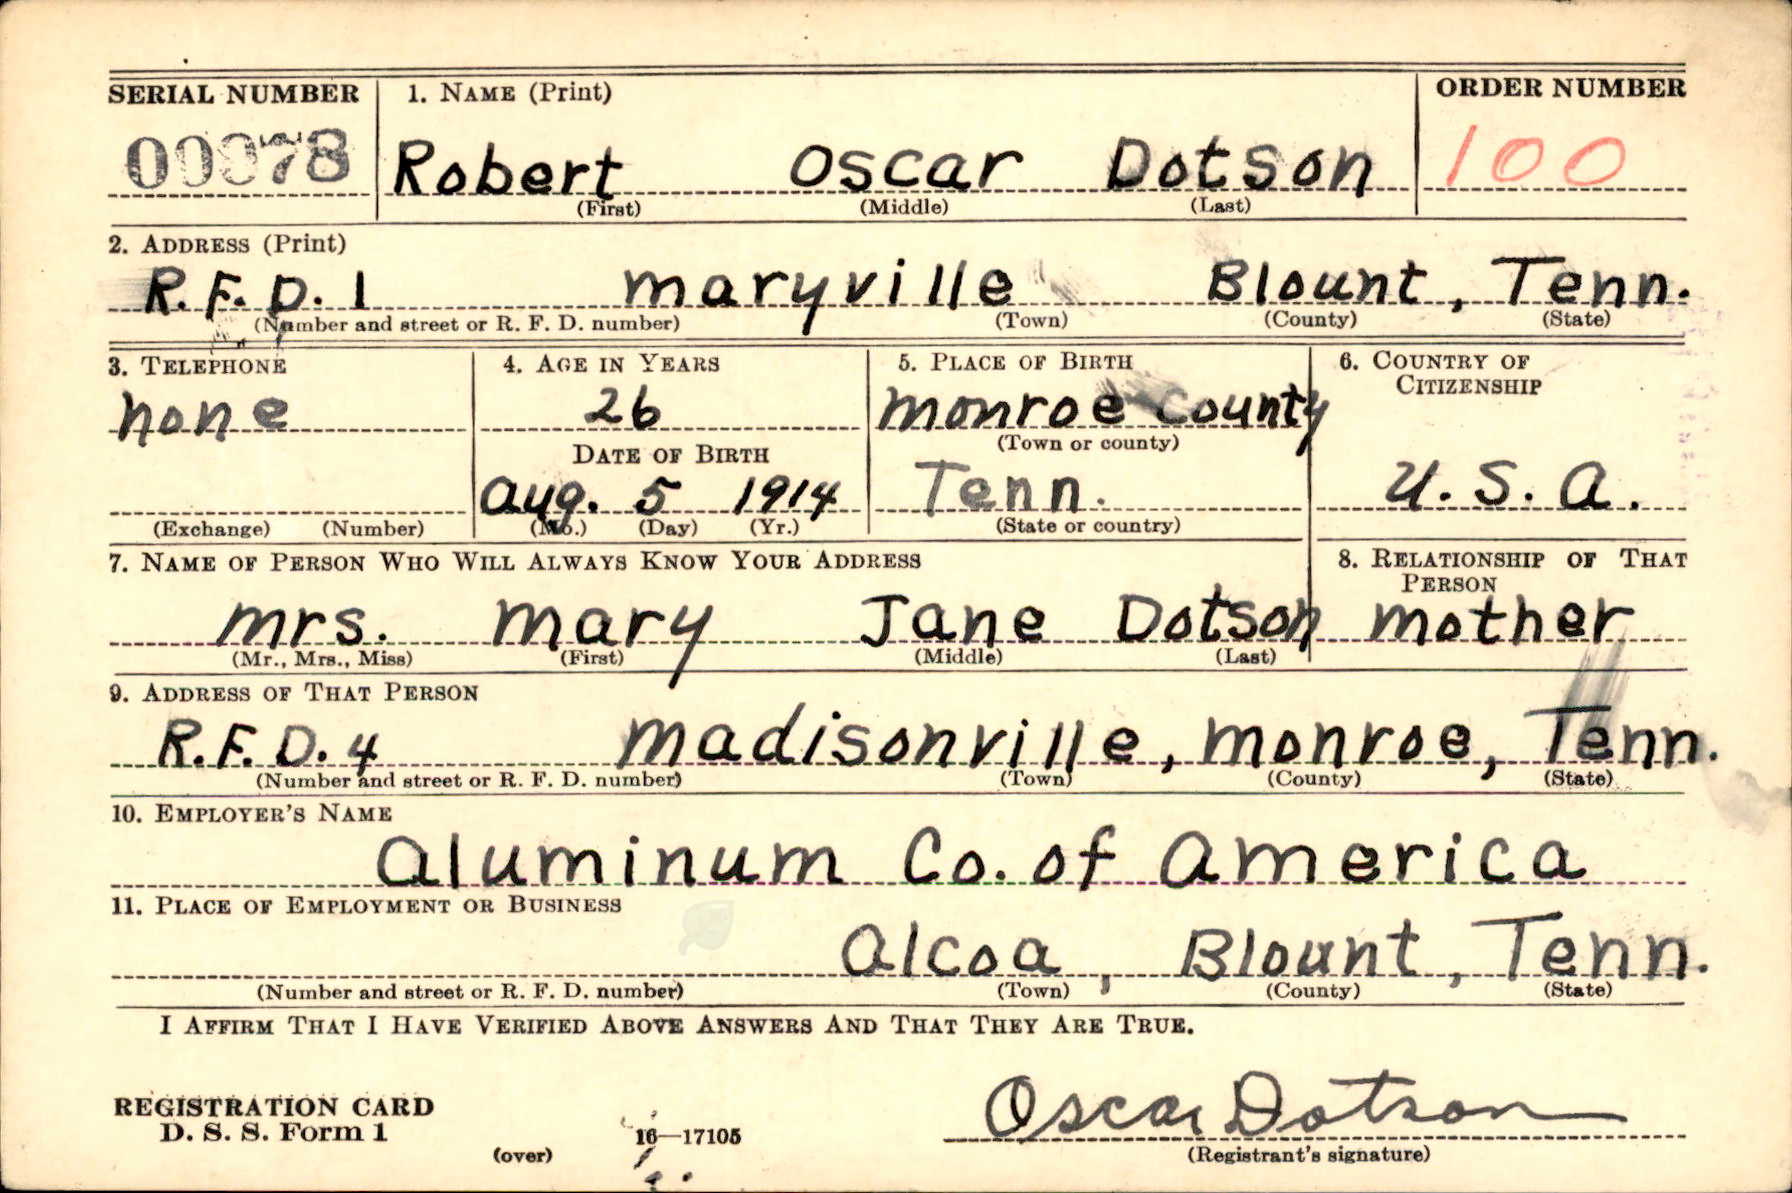 SERIAL NUMBER 1. NAME (Print) ORDER NUMBER
Robert Oscar Dotson 100
(First) (Middle) (Last)
2. ADDRESS (Print)
R.F.D. 1 Maryville Blount, Tenn.
(Number and street or R. F. D. number) (Town) (County) (State)
3. TELEPHONE 4. AGE IN YEARS 5. PLACE OF BIRTH 6. COUNTRY OF
CITIZENSHIP
none 26 Monroe County
(Town or county)
DATE OF BIRTH
Aug. 5 1914 Tenn. U.S.A.
(Exchange) (Number) (Mo.) (Day) (Yr.) (State or country)
7. NAME OF PERSON WHO WILL ALWAYS KNOW YOUR ADDRESS 8. RELATIONSHIP OF THAT
PERSON
Mrs. Mary Jane Dotson Mother
(Mr., Mrs., Miss) (First) (Middle) (Last)
9. ADDRESS OF THAT PERSON
R.F.D. 4 Madisonville, Monroe, Tenn.
(Number and street or R. F. D. number) (Town) (County) (State)
10. EMPLOYER'S NAME
Aluminum Co. of America
11. PLACE OF EMPLOYMENT OR BUSINESS
Alcoa, Blount, Tenn.
(Number and street or R. F. D. number) (Town) (County) (State)
I AFFIRM THAT I HAVE VERIFIED ABOVE ANSWERS AND THAT THEY ARE TRUE.
REGISTRATION CARD
D. S. S. Form 1 Oscar Dotson
(over) 16—17105 (Registrant's signature)